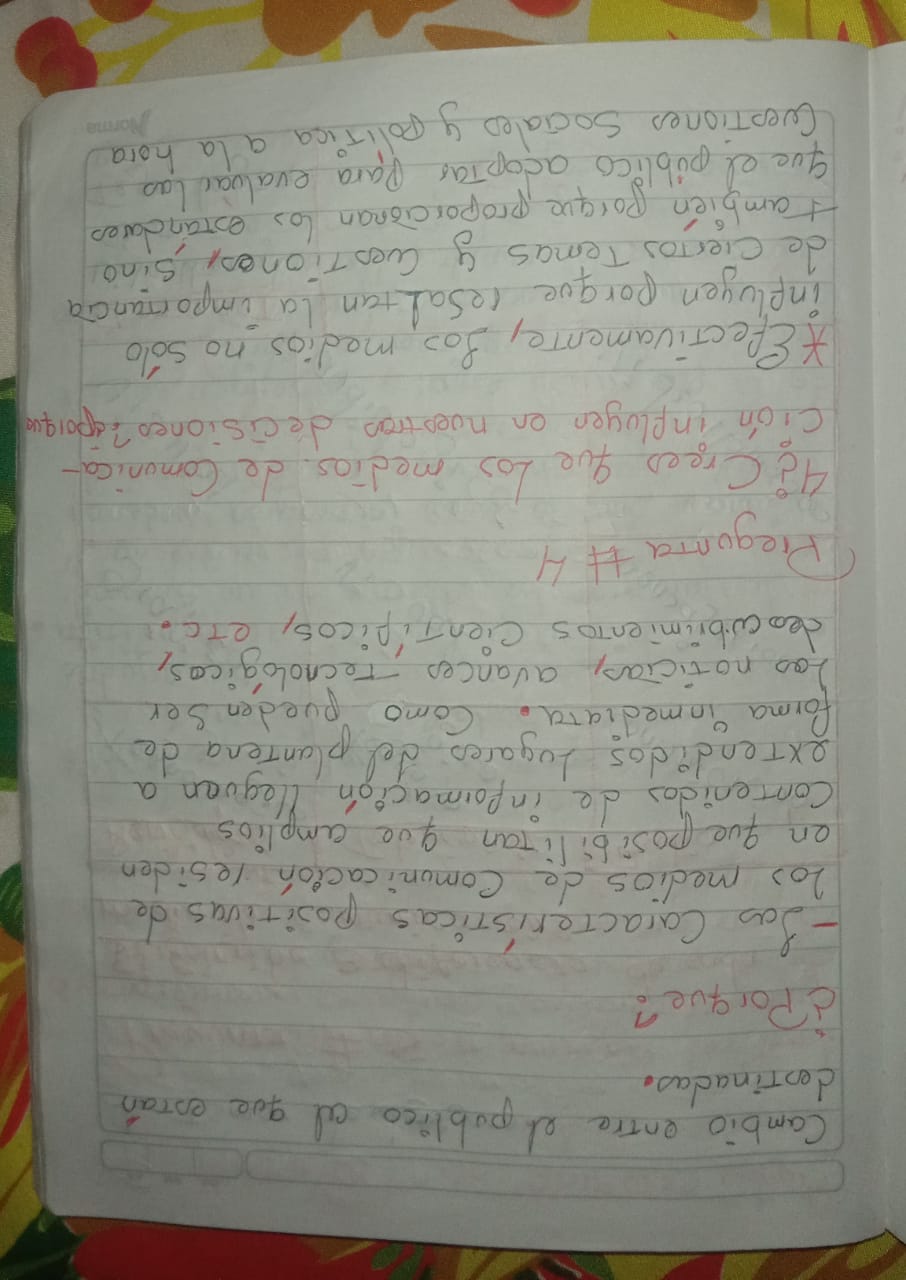 Cambio entre el publico al que están
destinadas.
¿Porque?
- Las Características positivas de
los medios de Comunicación residen
en que posibilitan que amplios
Contenidos de información lleguen a
extendidos Lugares del plantena de
forma inmediata. Como pueden Ser
Las noticias, avances Tecnológicos,
descubrimientos Científicos, etc.
Pregunta # 4
4¿ Crees que Los medios de Comunica-
Ción influyen en nuestras decisiones? ¿porque
* Efectivamente, Los medios no sólo
influyen porque resaltan la importancia
de Ciertos Temas y Cuestiones, Sino
también porque proporcionan los estándares
que el público adoptas para evaluar Las
Cuestiones Sociales y política a la hora
Norma